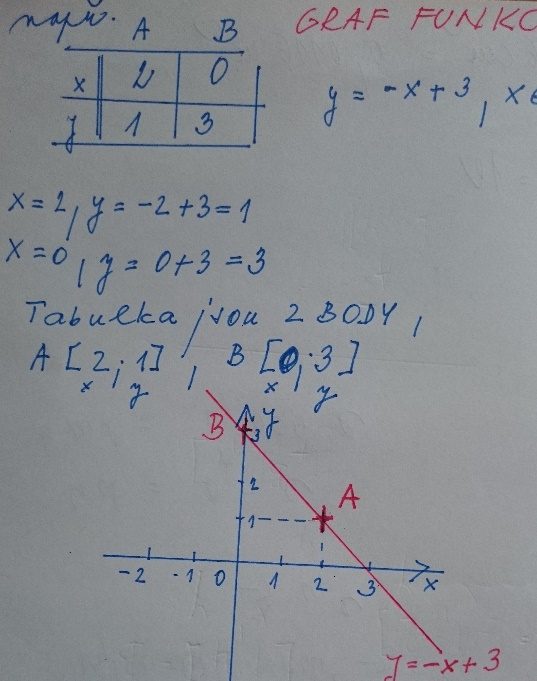 např. A B GRAF FUNKC
x 2 0
y = -x + 3, x∈
y 1 3
x = 2, y = -2 + 3 = 1
x = 0, y = 0 + 3 = 3
Tabulka jsou 2 BODY,
A [2; 1], B [0; 3]
x y x y
B 3 y
2
A
1
-2 -1 0 1 2 3 x
y = -x + 3